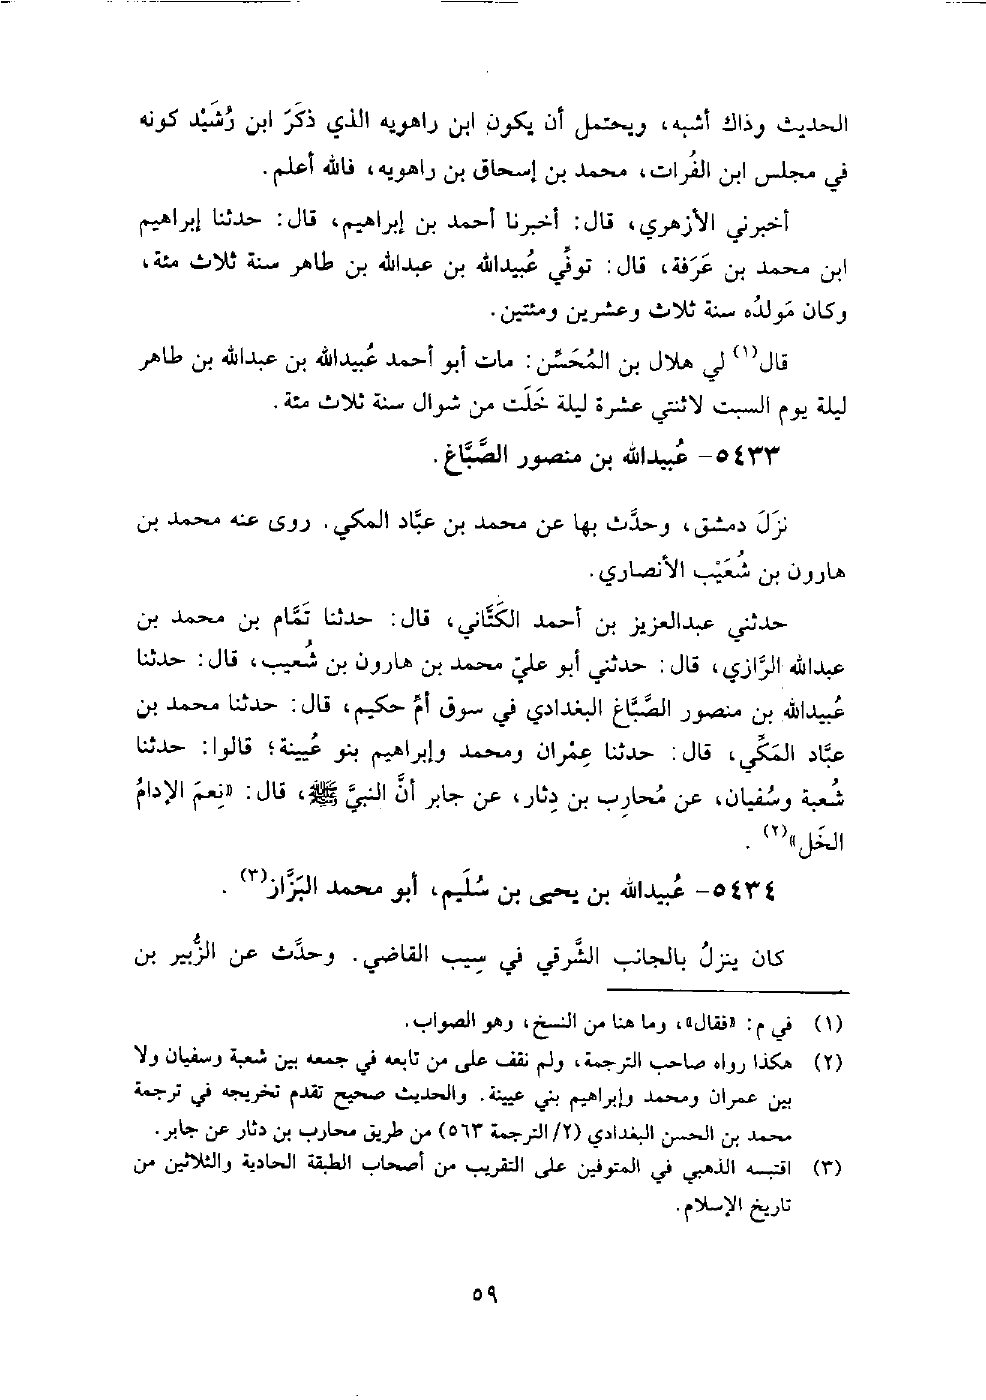 الحديث وذاك أشبه، ويحتمل أن يكون ابن راهويه الذي ذكَرَ ابن رُشَيْد كونه
في مجلس ابن الفُرات، محمد بن إسحاق بن راهويه، فالله أعلم.
أخبرني الأزهري، قال: أخبرنا أحمد بن إبراهيم، قال: حدثنا إبراهيم
ابن محمد بن عَرَفة، قال: توفِّي عُبيدالله بن عبدالله بن طاهر سنة ثلاث مئة،
وكان مَولدُه سنة ثلاث وعشرين ومئتين.
قال(١) لي هلال بن المُحَسِّن: مات أبو أحمد عُبيدالله بن عبدالله بن طاهر
ليلة يوم السبت لاثنتي عشرة ليلة خَلَت من شوال سنة ثلاث مئة.
٥٤٣٣- عُبيدالله بن منصور الصَّبَّاغ.
نزَلَ دمشق، وحدَّث بها عن محمد بن عبَّاد المكي. روى عنه محمد بن
هارون بن شُعَيْب الأنصاري.
حدثني عبدالعزيز بن أحمد الكَتَّاني، قال: حدثنا تَمَّام بن محمد بن
عبدالله الرَّازي، قال: حدثني أبو عليّ محمد بن هارون بن شُعيب، قال: حدثنا
عُبيدالله بن منصور الصَّبَّاغ البغدادي في سوق أمِّ حكيم، قال: حدثنا محمد بن
عبَّاد المَكِّي، قال: حدثنا عِمْران ومحمد وإبراهيم بنو عُيينة؛ قالوا: حدثنا
شُعبة وسُفيان، عن مُحارِب بن دِثار، عن جابر أنَّ النبيَّ ﷺ، قال: «نِعمَ الإدامُ
الخَل»(٢).
٥٤٣٤- عُبيدالله بن يحيى بن سُلَيم، أبو محمد البَزَّاز(٣).
كان ينزلُ بالجانب الشَّرقي في سِيب القاضي. وحدَّث عن الزُّبير بن
(١) في م: «فقال»، وما هنا من النسخ، وهو الصواب.
(٢) هكذا رواه صاحب الترجمة، ولم نقف على من تابعه في جمعه بين شعبة وسفيان ولا
بين عمران ومحمد وإبراهيم بني عيينة. والحديث صحيح تقدم تخريجه في ترجمة
محمد بن الحسن البغدادي (٢/ الترجمة ٥٦٣) من طريق محارب بن دثار عن جابر.
(٣) اقتبسه الذهبي في المتوفين على التقريب من أصحاب الطبقة الحادية والثلاثين من
تاريخ الإسلام.
٥٩